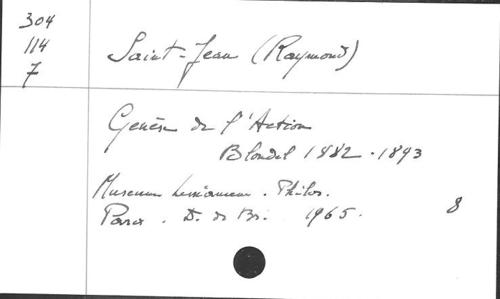 304
114
7
Saint-Jean (Raymond)
Genèse de l'Action
Blondel 1882-1893
Museum Lessianum. Philos.
Paris. D. de Br. 1965.
8